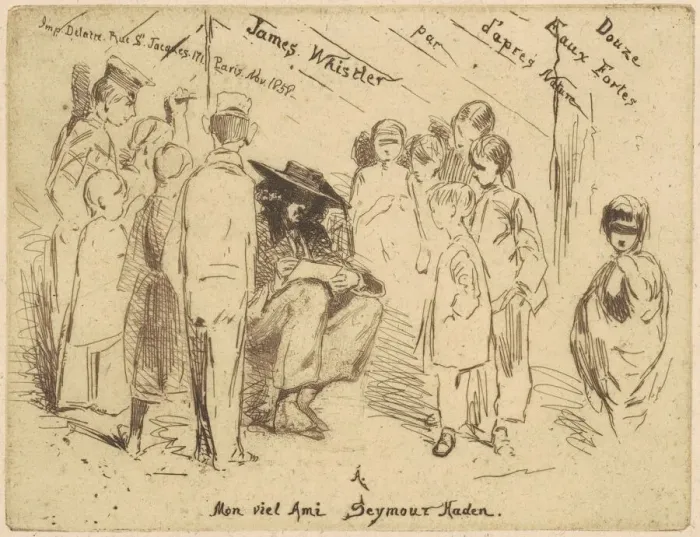 Imp. Delatre. Rue St. Jacques. 171. Paris. Nov. 1858.
James Whistler
par
d'après Nature
Eaux Fortes
Douze
Á.
Mon viel Ami Seymour Haden.